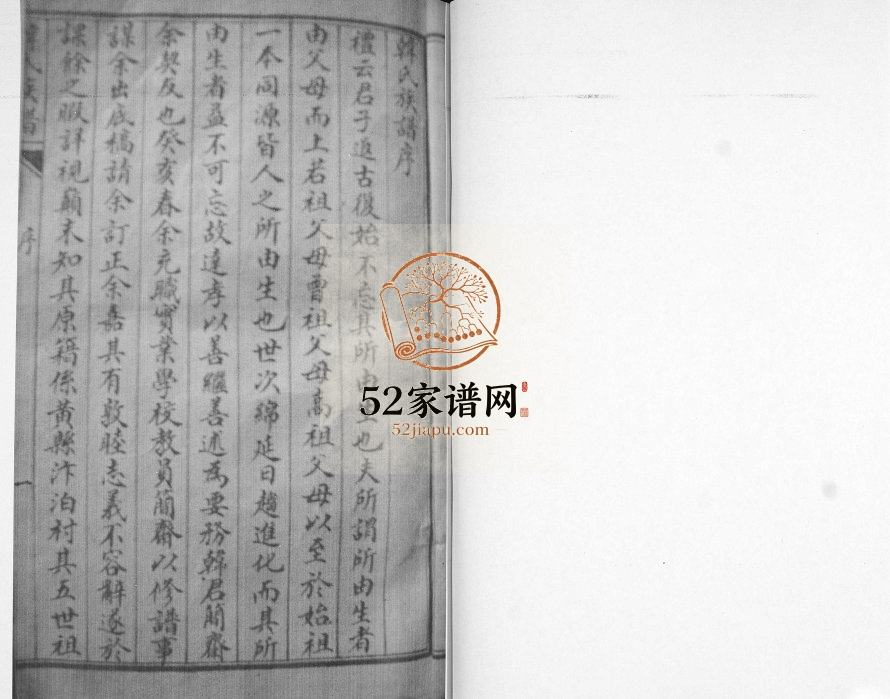 韓氏族譜序
禮云君子追古復始不忘其所由生也夫所謂所由生者
由父母而上若祖父母曹祖父母高祖父母以至於始祖
一本同源皆人之所由生也世次綿延日趨進化而其所
由生者益不可忘故達孝以善繼善述為要務韓君簡齋
余契友也癸亥春余充職實業學校教員簡齋以修譜事
謀余出底稿請余訂正余嘉其有敦睦志義不容辭遂於
課餘之暇詳視顛末知其原籍係黃縣汴泊村其五世祖
韓氏族譜
序
一
52家谱网
52jiapu.com